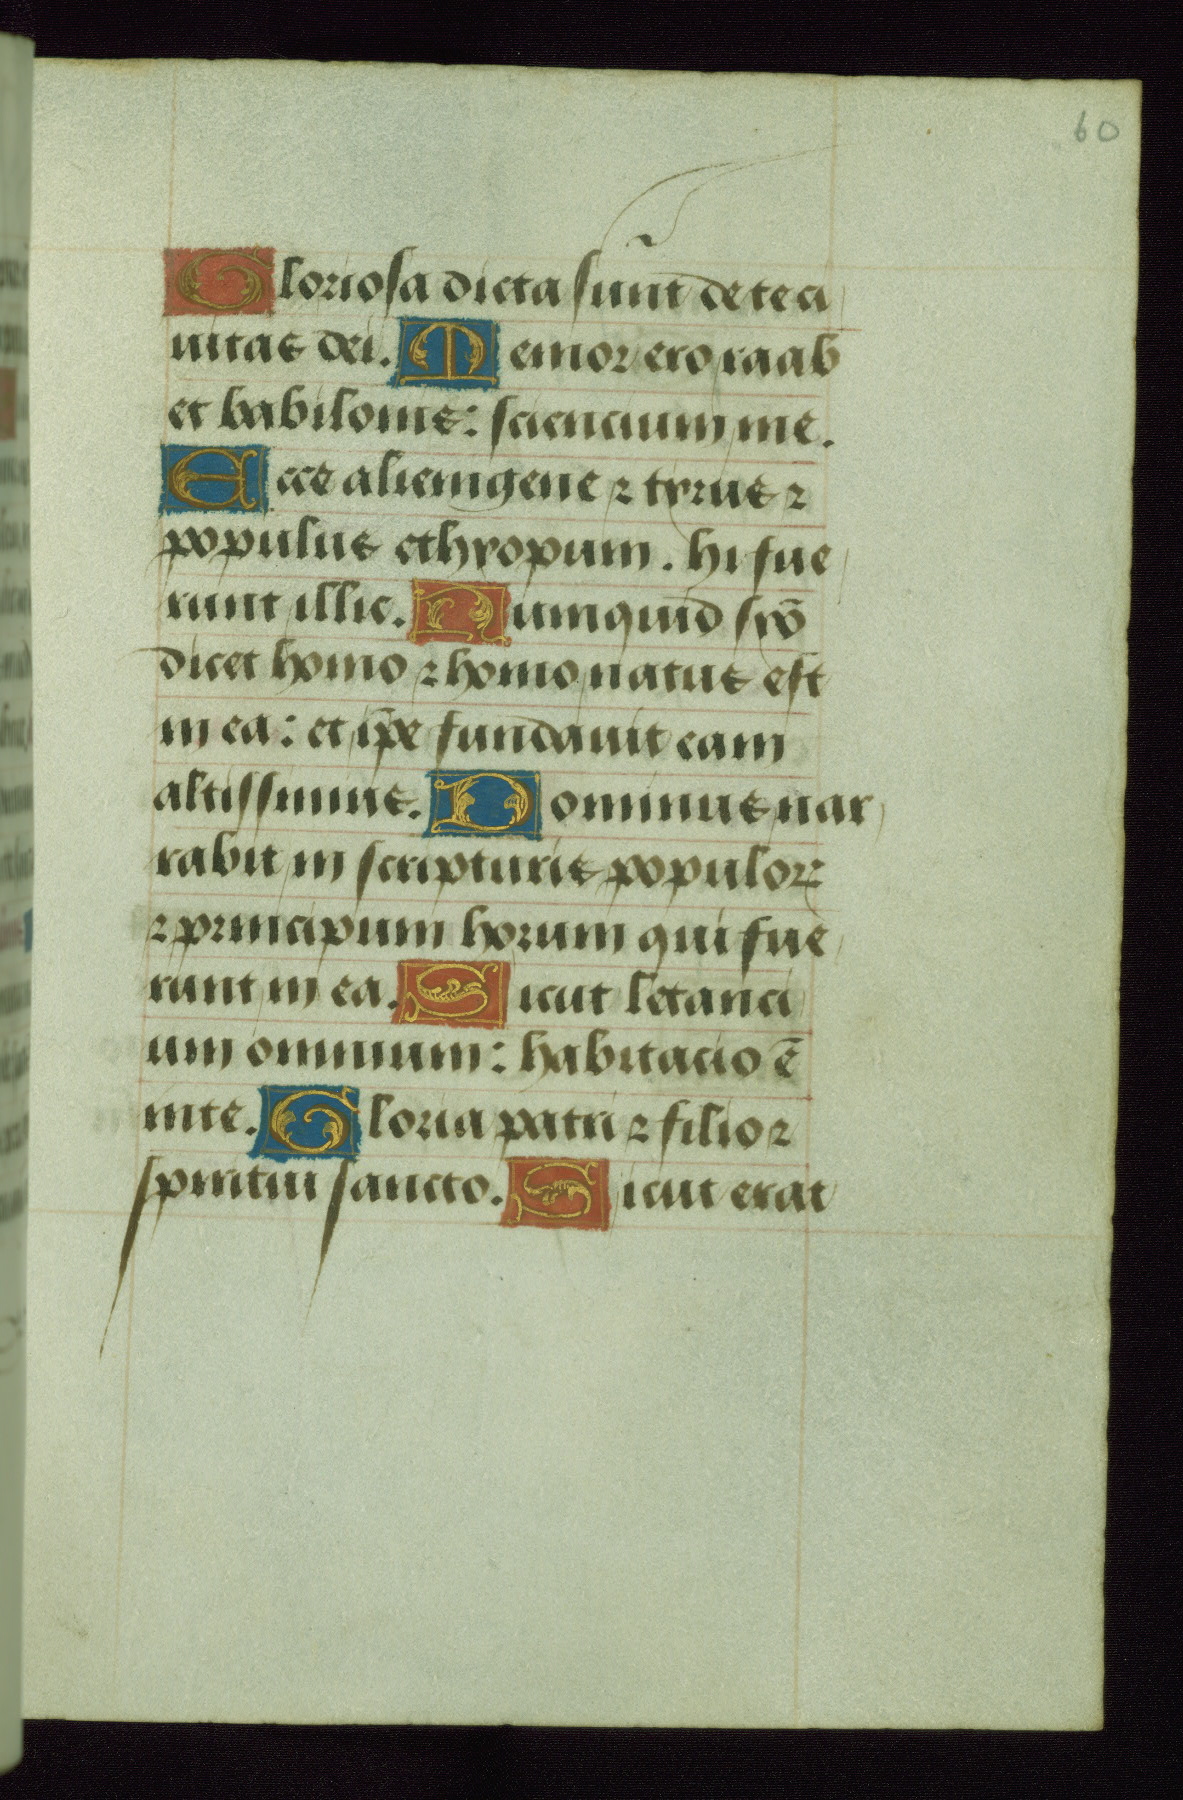 60
Gloriosa dicta sunt de te ci
uitas dei. Memor ero raab
et babilonis: sciencium me.
Ecce alienigene ⁊ tyrus ⁊
populus ethyopum. hi fue
runt illic. Numquid syõ
dicet homo ⁊ homo natus est
in ea: et ip̃e fundauit eam
altissimus. Dominus nar
rabit in scripturis populoꝝ
⁊ principum horum qui fue
runt in ea. Sicut letanci
um omnium: habitacio ẽ
in te. Gloria patri ⁊ filio ⁊
spiritui sancto. Sicut erat